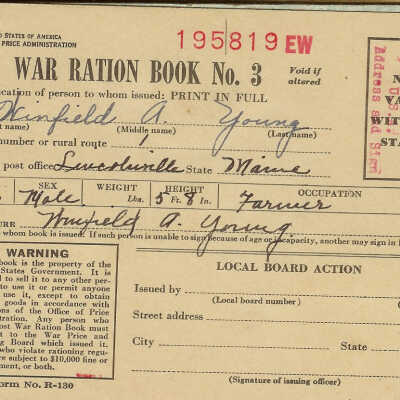 D STATES OF AMERICA
PRICE ADMINISTRATION
195819 EW
WAR RATION BOOK No. 3
Void if
altered
ication of person to whom issued: PRINT IN FULL
Winfield A. Young
t name) (Middle name) (Last name)
number or rural route 1
post office Lincolnville State Maine
SEX WEIGHT HEIGHT OCCUPATION
Male Lbs. 5 Ft. 8 In. Farmer
URE Winfield A. Young
whom book is issued. If such person is unable to sign because of age or incapacity, another may sign in
WARNING
book is the property of the
States Government. It is
l to sell it to any other per-
to use it or permit anyone
use it, except to obtain
goods in accordance with
ions of the Office of Price
tration. Any person who
ost War Ration Book must
t to the War Price and
ng Board which issued it.
who violate rationing regu-
re subject to $10,000 fine or
ment, or both.
orm No. R-130
LOCAL BOARD ACTION
Issued by
(Local board number)
Street address
City State
(Signature of issuing officer)
N
VA
WIT
STA
Address and Sign